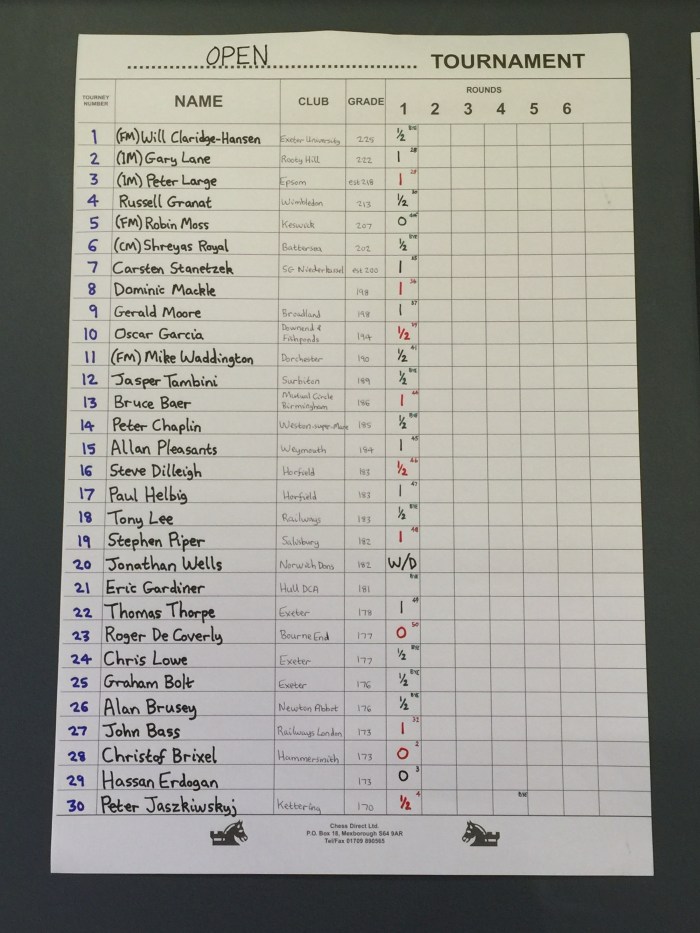 OPEN TOURNAMENT
TOURNEY NUMBER NAME CLUB GRADE ROUNDS
1 2 3 4 5 6
1 (FM) Will Claridge-Hansen Exeter University 225 ½ BYE
2 (IM) Gary Lane Rooty Hill 222 1 28
3 (IM) Peter Large Epsom est 218 1 29
4 Russell Granat Wimbledon 213 ½ 30
5 (FM) Robin Moss Keswick 207 0
6 (CM) Shreyas Royal Battersea 202 ½ BYE
7 Carsten Stanetzek SG Niederkassel est 200 1
8 Dominic Mackle 198 1 36
9 Gerald Moore Broadland 198 1 37
10 Oscar Garcia Downend & Fishponds 194 ½ 39
11 (FM) Mike Waddington Dorchester 190 ½ 41
12 Jasper Tambini Surbiton 189 ½ BYE
13 Bruce Baer Mutual Circle Birmingham 186 1
14 Peter Chaplin Weston-super-Mare 185 ½ BYE
15 Allan Pleasants Weymouth 184 1 45
16 Steve Dilleigh Horfield 183 ½ 46
17 Paul Helbig Horfield 183 1 47
18 Tony Lee Railways 183 ½ BYE
19 Stephen Piper Salisbury 182 1 48
20 Jonathan Wells Norwich Dons 182 W/D
21 Eric Gardiner Hull DCA 181 BYE
22 Thomas Thorpe Exeter 178 1 49
23 Roger De Coverly Bourne End 177 0 50
24 Chris Lowe Exeter 177 ½ BYE
25 Graham Bolt Exeter 176 ½ BYE
26 Alan Brusey Newton Abbot 176 ½ BYE
27 John Bass Railways London 173 1
28 Christof Brixel Hammersmith 173 0 2
29 Hassan Erdogan 173 0 3
30 Peter Jaszkiwskyj Kettering 170 ½ 4 BYE
Chess Direct Ltd.
P.O. Box 18, Mexborough S64 9AR
Tel/Fax 01709 890565